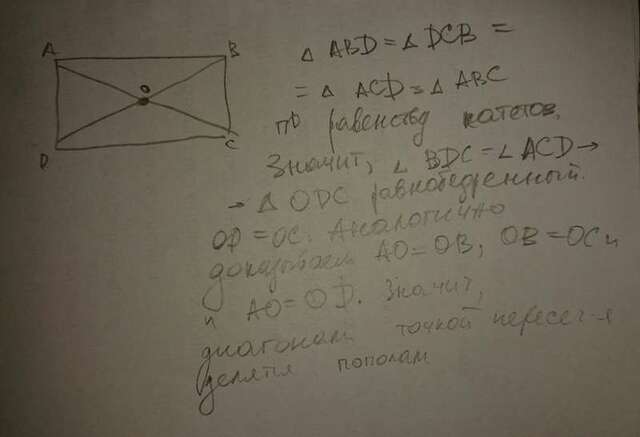 A B
O
D C
△ ABD = △ DCB =
= △ ACD = △ ABC
по равенству катетов.
Значит, ∠ BDC = ∠ ACD →
→ △ ODC равнобедренный.
OD = OC. Аналогично
доказываем AO = OB, OB = OC и
и AO = OD. Значит,
диагонали точкой пересеч-я
делятся пополам